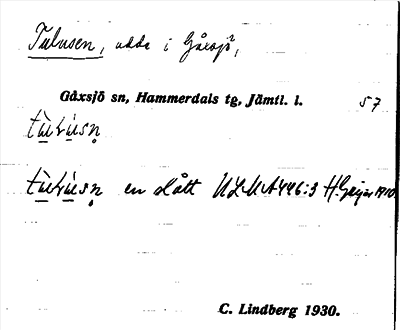 Tulusen, udde i Gåxsjö,
Gåxsjö sn, Hammerdals tg, Jämtl. l. 57
en slått ULMA 446:3 H. Geijer 1910
C. Lindberg 1930.